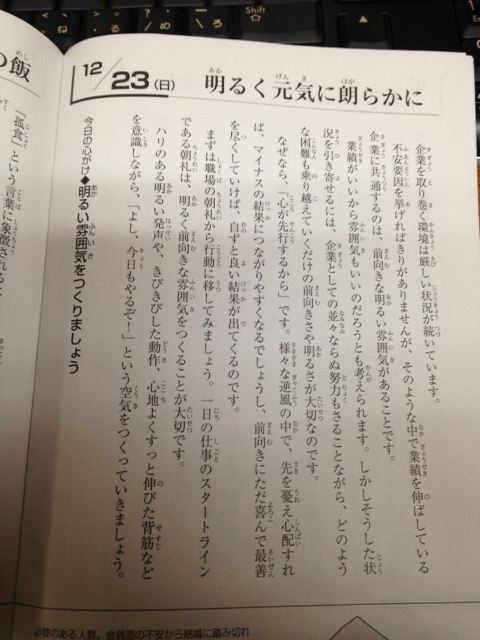 12/23(日)
明るく元気に朗らかに
企業を取り巻く環境は厳しい状況が続いています。
不安要因を挙げればきりがありませんが、そのような中で業績を伸ばしている
企業に共通するのは、前向きな明るい雰囲気があることです。
業績がいいから雰囲気もいいのだろうとも考えられます。しかしそうした状
況を引き寄せるには、企業としての並々ならぬ努力もさることながら、どのよう
な困難も乗り越えていくだけの前向きさや明るさが大切なのです。
なぜなら、「心が先行するから」です。様々な逆風の中で、先を憂え心配すれ
ば、マイナスの結果につながりやすくなるでしょうし、前向きにただ喜んで最善
を尽くしていけば、自ずと良い結果が出てくるのです。
まずは職場の朝礼から行動に移してみましょう。一日の仕事のスタートライン
である朝礼は、明るく前向きな雰囲気をつくることが大切です。
ハリのある明るい発声や、きびきびした動作、心地よくすっと伸びた背筋など
を意識しながら、「よし、今日もやるぞ!」という空気をつくっていきましょう。
今日の心がけ◆明るい雰囲気をつくりましょう
の飯
「孤食」という言葉に象徴される
必要のある人数。金銭面の不安から結婚に踏み切れ
Shift